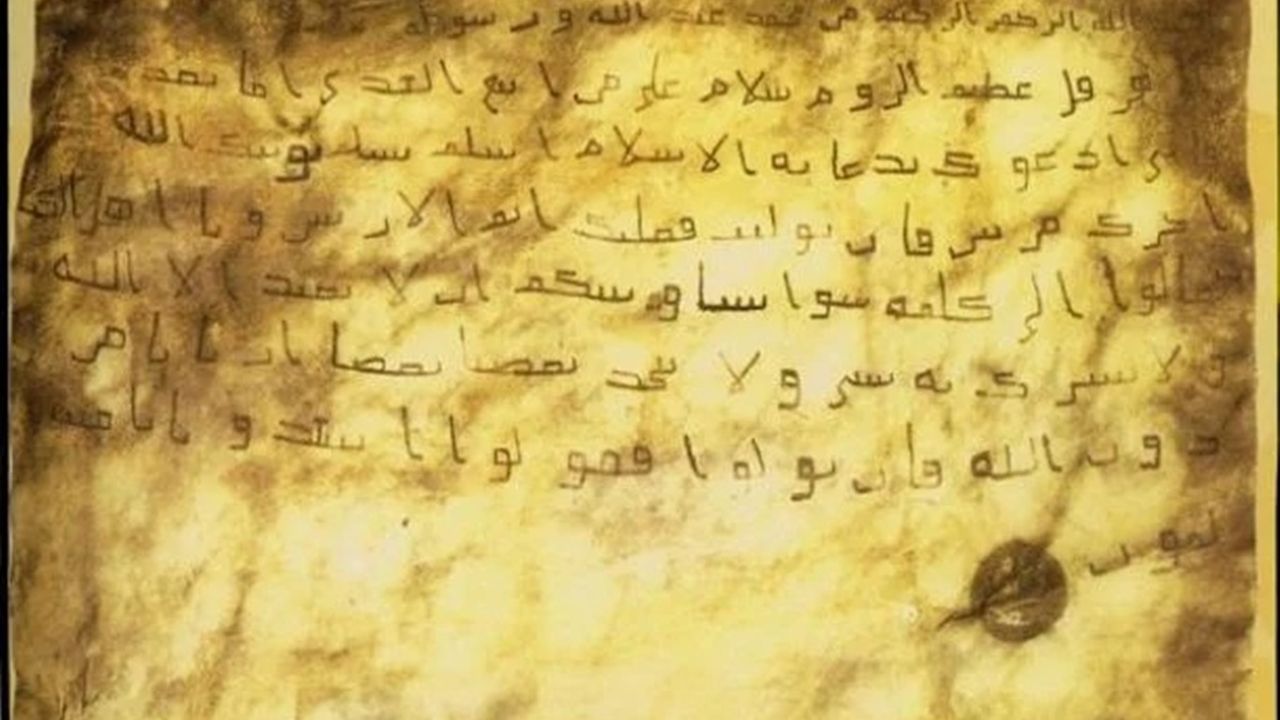 الله الرحمن الرحيم من محمد عبد الله ورسوله
هرقل عظيم الروم سلام على من اتبع الهدى اما بعد
ى ادعوك بدعايه الاسلام اسلم تسلم يوتك الله
اجرك مرتين فان توليت فعليك اثم الاريسين ويا اهل الكتا
تعالوا الى كلمه سوا بيننا وبينكم ان لا نعبد الا الله
ولا نشرك به شى ولا يتخذ بعضنا بعضا اربابا من
دون الله فان تولوا فقولوا
لمون